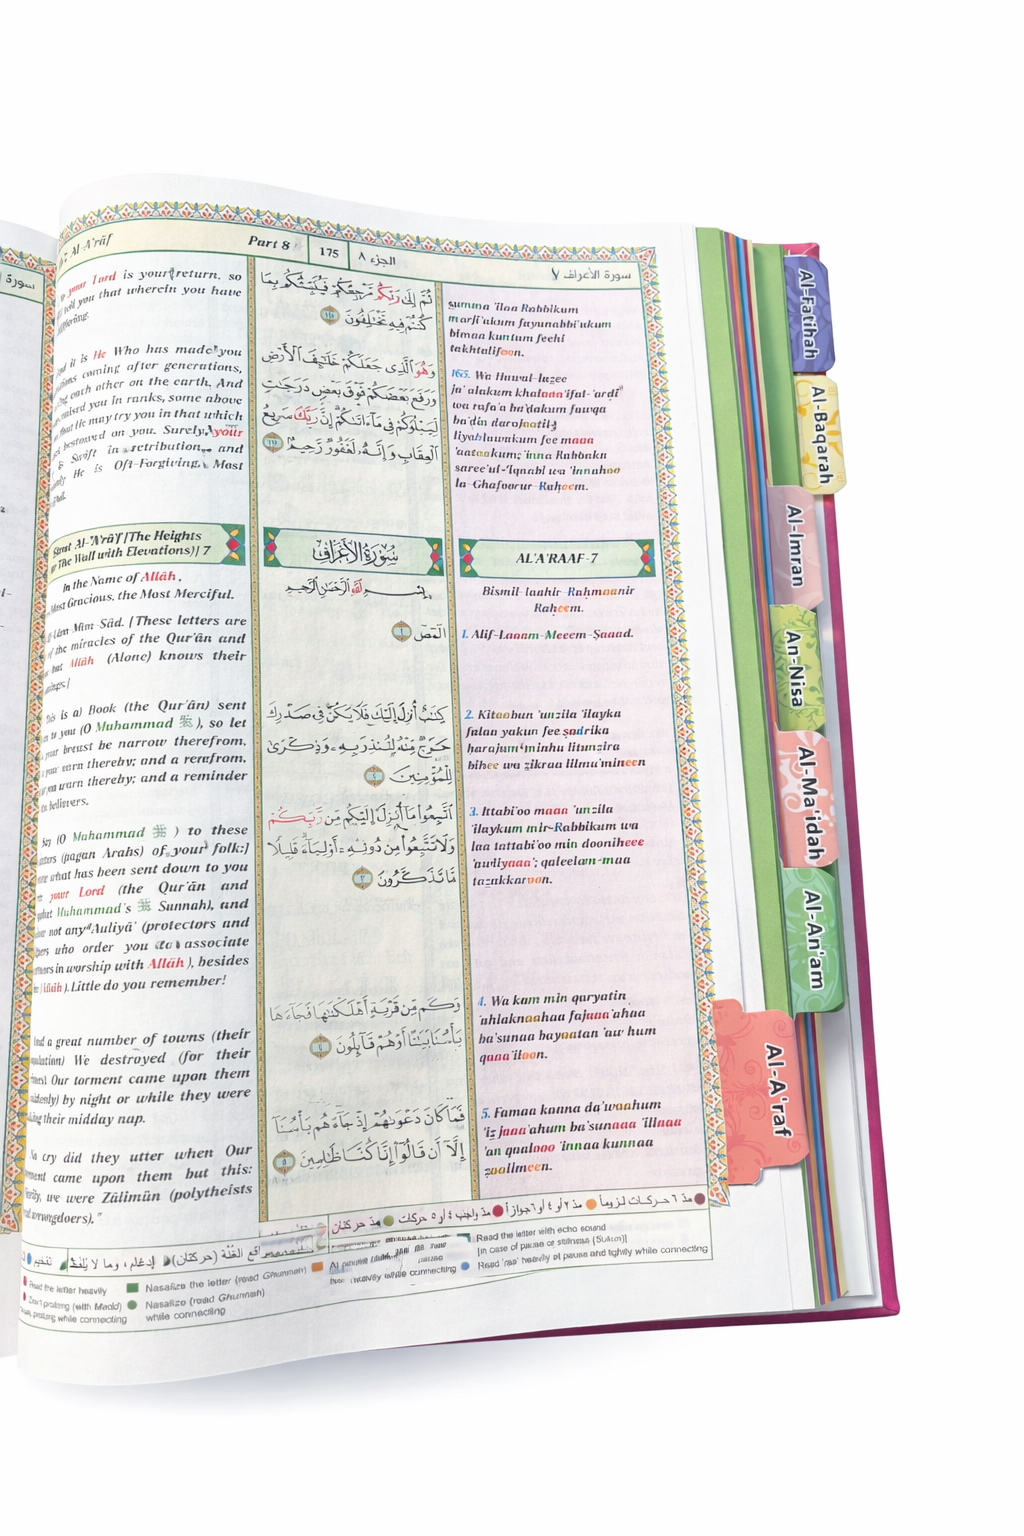 Al-A'râf
Part 8
175
الجزء ٨
سورة الأعراف ٧
your Lord is your return, so
you that wherein you have
it is He Who has made you
coming after generations,
each other on the earth. And
you in ranks, some above
He may try you in that which
bestowed on you. Surely, your
is Swift in retribution, and
He is Oft-Forgiving, Most
Sûrat Al-A'râf [The Heights
The Wall with Elevations)] 7
In the Name of Allâh,
Most Gracious, the Most Merciful.
Mîm-Sâd. [These letters are
of the miracles of the Qur'ân and
but Allâh (Alone) knows their
This is a) Book (the Qur'ân) sent
to you (O Muhammad ﷺ), so let
your breast be narrow therefrom,
warn thereby; and a
you warn thereby; and a reminder
believers.
Say (O Muhammad ﷺ) to these
(pagan Arabs) of your folk:]
what has been sent down to you
your Lord (the Qur'ân and
Muhammad's ﷺ Sunnah), and
not any Auliyâ' (protectors and
who order you to associate
in worship with Allâh), besides
Allâh). Little do you remember!
And a great number of towns (their
We destroyed (for their
Our torment came upon them
by night or while they were
their midday nap.
No cry did they utter when Our
came upon them but this:
we were Zâlimûn (polytheists
wrongdoers)."
ثُمَّ إِلَىٰ رَبِّكُم مَّرْجِعُكُمْ فَيُنَبِّئُكُم بِمَا
كُنتُمْ فِيهِ تَخْتَلِفُونَ
وَهُوَ ٱلَّذِى جَعَلَكُمْ خَلَٰٓئِفَ ٱلْأَرْضِ
وَرَفَعَ بَعْضَكُمْ فَوْقَ بَعْضٍ دَرَجَٰتٍ
لِّيَبْلُوَكُمْ فِى مَآ ءَاتَىٰكُمْ إِنَّ رَبَّكَ سَرِيعُ
ٱلْعِقَابِ وَإِنَّهُۥ لَغَفُورٌ رَّحِيمٌۢ
سُورَةُ الأَعْرَافِ
الٓمٓصٓ
كِتَٰبٌ أُنزِلَ إِلَيْكَ فَلَا يَكُن فِى صَدْرِكَ
حَرَجٌ مِّنْهُ لِتُنذِرَ بِهِۦ وَذِكْرَىٰ
لِلْمُؤْمِنِينَ ٢
ٱتَّبِعُوا۟ مَآ أُنزِلَ إِلَيْكُم مِّن رَّبِّكُمْ
وَلَا تَتَّبِعُوا۟ مِن دُونِهِۦٓ أَوْلِيَآءَ قَلِيلًا
مَّا تَذَكَّرُونَ ٣
وَكَم مِّن قَرْيَةٍ أَهْلَكْنَٰهَا فَجَآءَهَا
بَأْسُنَا بَيَٰتًا أَوْ هُمْ قَآئِلُونَ ٤
فَمَا كَانَ دَعْوَىٰهُمْ إِذْ جَآءَهُم بَأْسُنَآ
إِلَّآ أَن قَالُوٓا۟ إِنَّا كُنَّا ظَٰلِمِينَ ٥
summa 'ilaa Rabbikum
marji'ukum fayunabbi'ukum
bimaa kuntum feehi
takhtalifoon.
165. Wa Huwal-lazee
ja'alakum khalaaa'ifal-'ardi
wa rafa'a ba'dakum fawqa
ba'din darajaatil
liyabluwakum fee maaa
'aataakum; 'inna Rabbaka
saree'ul-'Iqaabi wa 'innahoo
la-Ghafoorur-Raheem.
AL'A'RAAF-7
Bismil-laahir-Rahmaanir
Raheem.
1. Alif-Laaam-Meeem-Saaad.
2. Kitaabun 'unzila 'ilayka
falaa yakun fee sadrika
harajum minhu litunzira
bihee wa zikraa lilmu'mineen
3. Ittabi'oo maaa 'unzila
'ilaykum mir-Rabbikum wa
laa tattabi'oo min dooniheee
'awliyaaa'; qaleelam-maa
tazakkaroon.
4. Wa kam min qaryatin
'ahlaknaahaa fajaaa'ahaa
ba'sunaa bayaatan 'aw hum
qaaa'iloon.
5. Famaa kaana da'waahum
'iz jaaa'ahum ba'sunaaa 'illaaa
'an qaalooo 'innaa kunnaa
zaalimeen.
مدّ ٦ حركات لزوماً
مدّ ٢ أو ٤ أو ٦ جوازاً
مدّ واجب ٤ أو ٥ حركات
مدّ حركتان
الغنّة (حركتان)
إدغام، وما لا يُلفظ
تفخيم
Read the letter heavily
(with Madd)
prolong while connecting
Nasalize the letter (read Ghunnah)
Nasalize (read Ghunnah)
while connecting
heavily while connecting
Read the letter with echo sound
[in case of pause or stillness (Sukun)]
Read 'raa' heavily at pause and lightly while connecting
Al-Fatihah
Al-Baqarah
Al-Imran
An-Nisa
Al-Ma'idah
Al-An'am
Al-A'raf